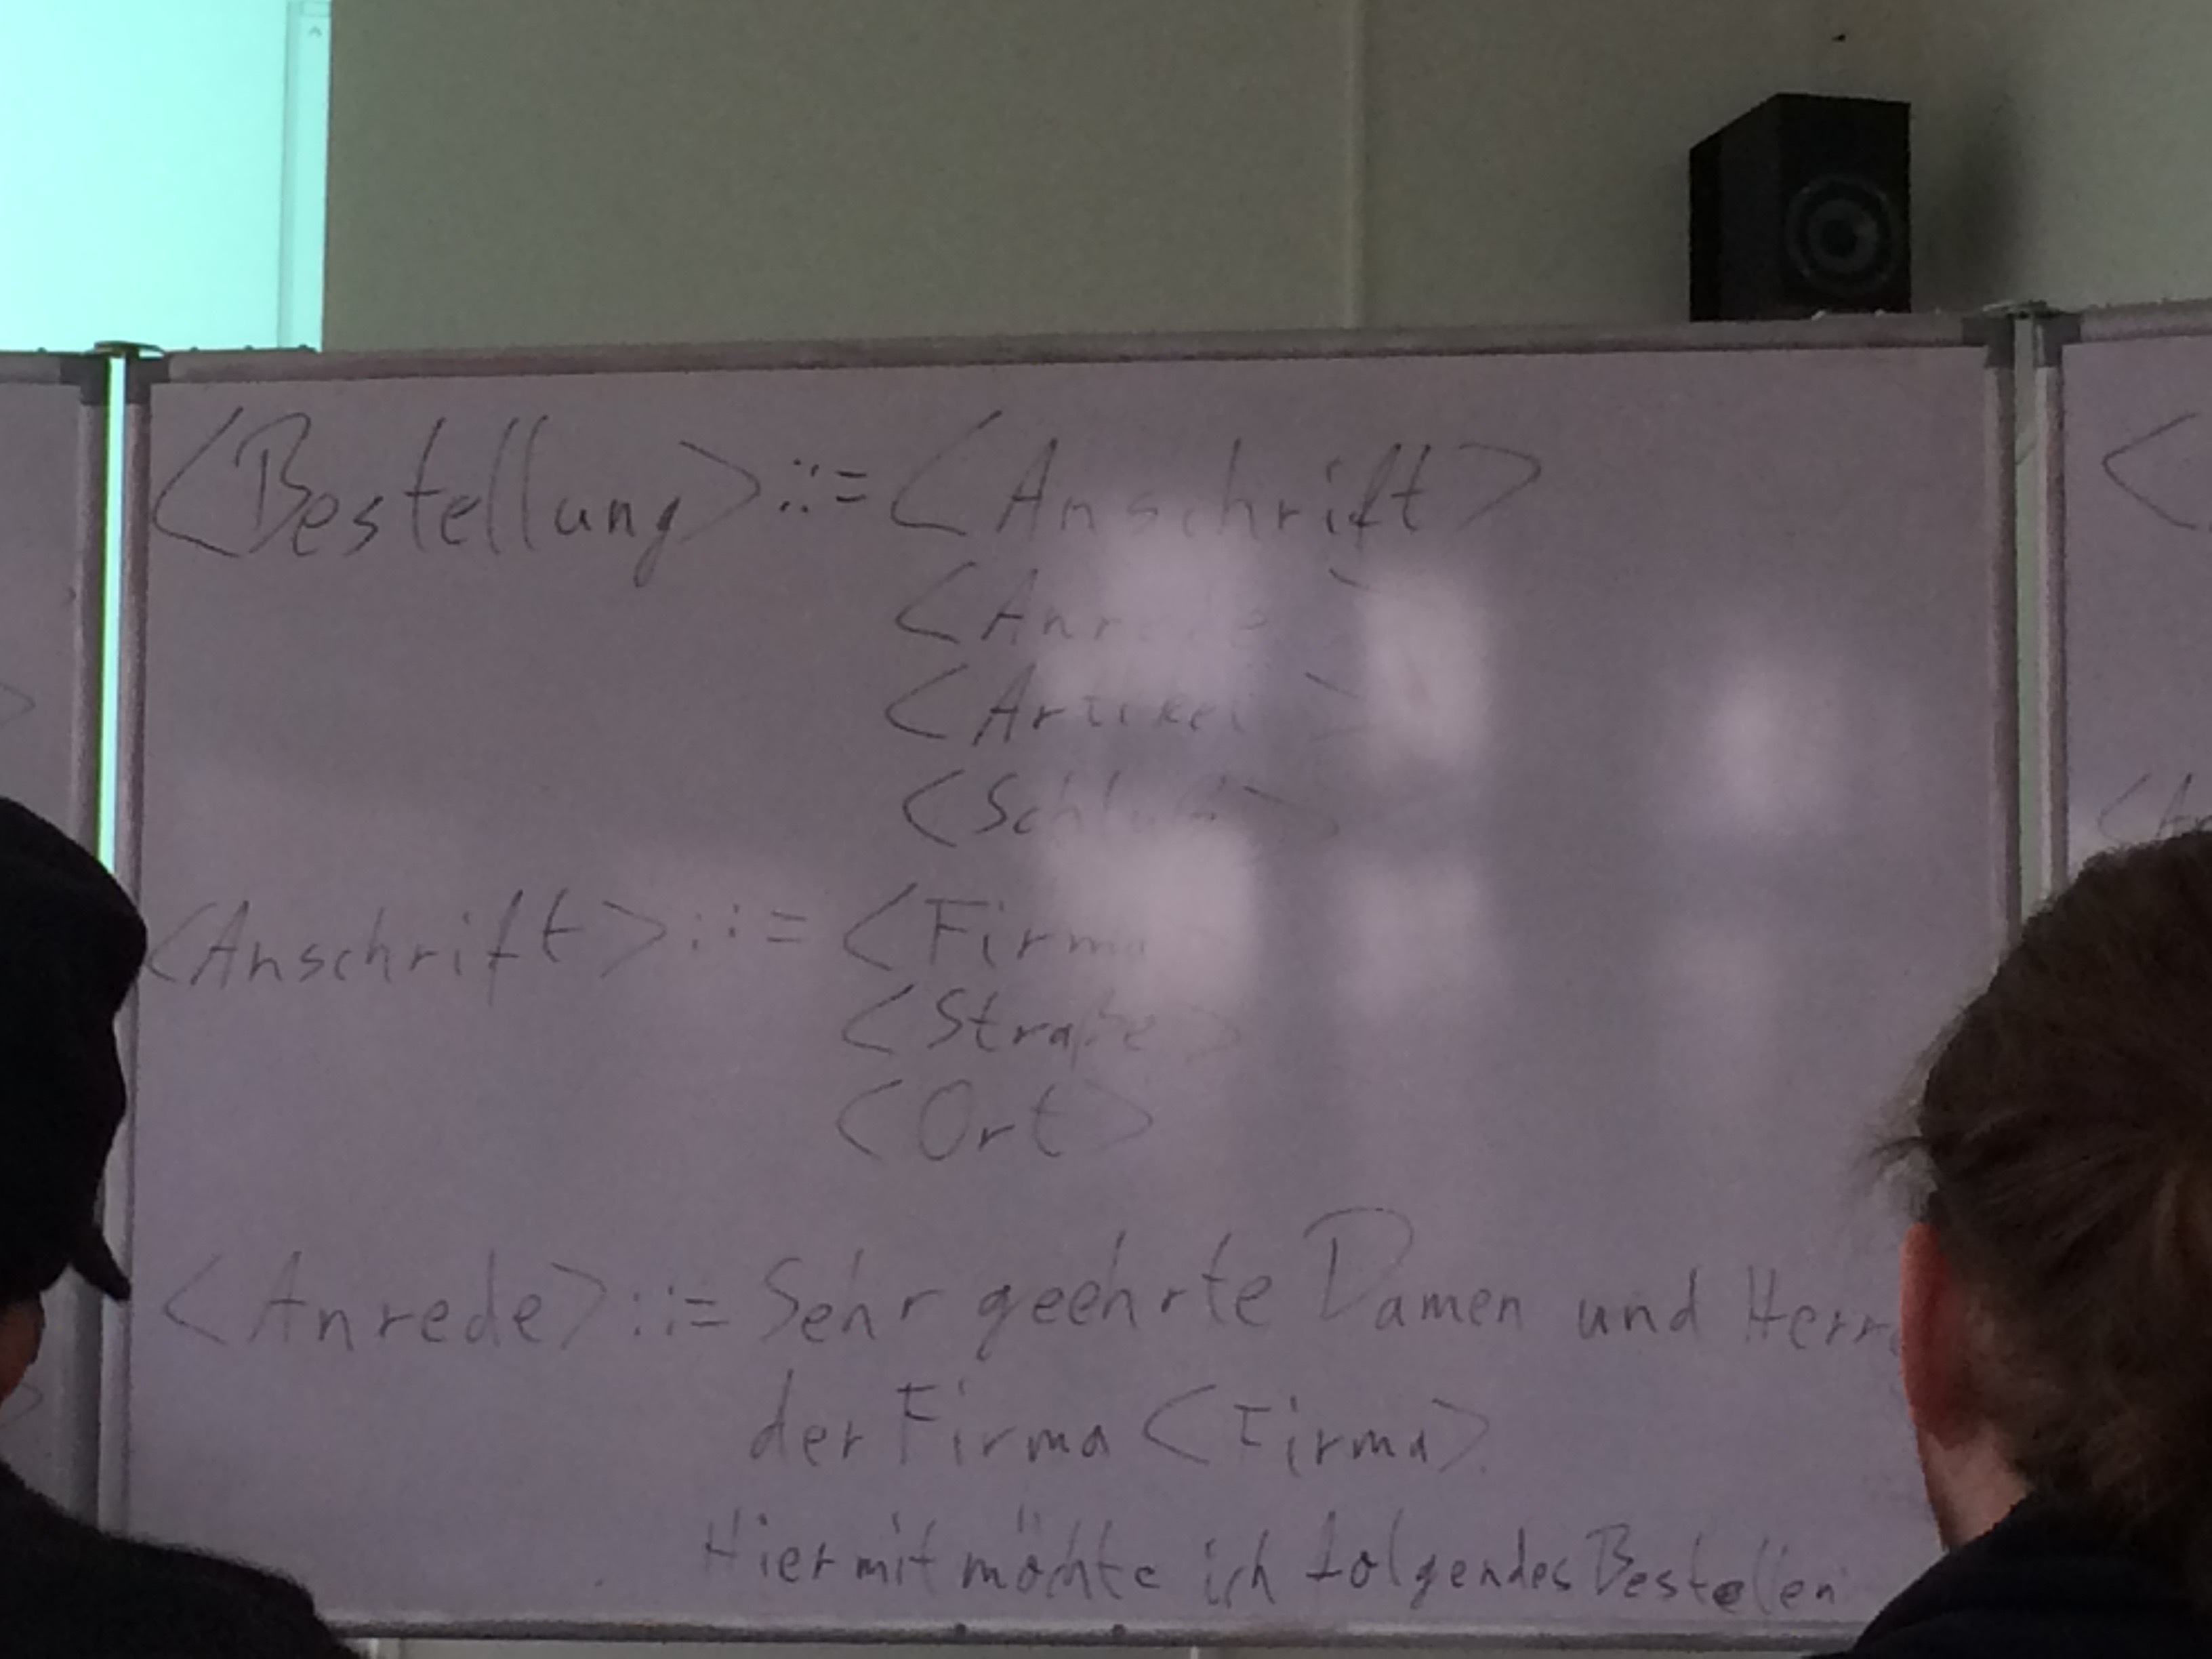 <Bestellung> ::= <Anschrift>
<Anrede>
<Artikel>
<Schluß>
<Anschrift> ::= <Firma
<Straße>
<Ort>
<Anrede> ::= Sehr geehrte Damen und Herre
der Firma <Firma>.
Hiermit möchte ich folgendes Bestellen